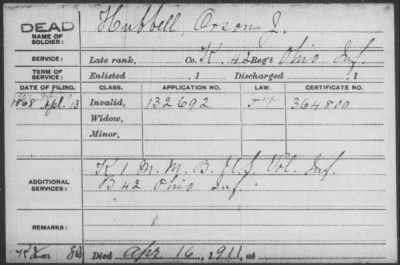 DEAD
NAME OF SOLDIER: Hubbell, Orson J.
SERVICE: Late rank, Co. K, 42 Reg't Ohio Inf.
TERM OF SERVICE: Enlisted , 1 Discharged , 1
DATE OF FILING. CLASS. APPLICATION NO. LAW. CERTIFICATE NO.
1868 Apl. 13 Invalid, 132692 364800
Widow,
Minor,
ADDITIONAL SERVICES: K 1 M. M. B. Vol. Inf.
B 42 Ohio Inf.
REMARKS:
Died Apr 16, 1911, at